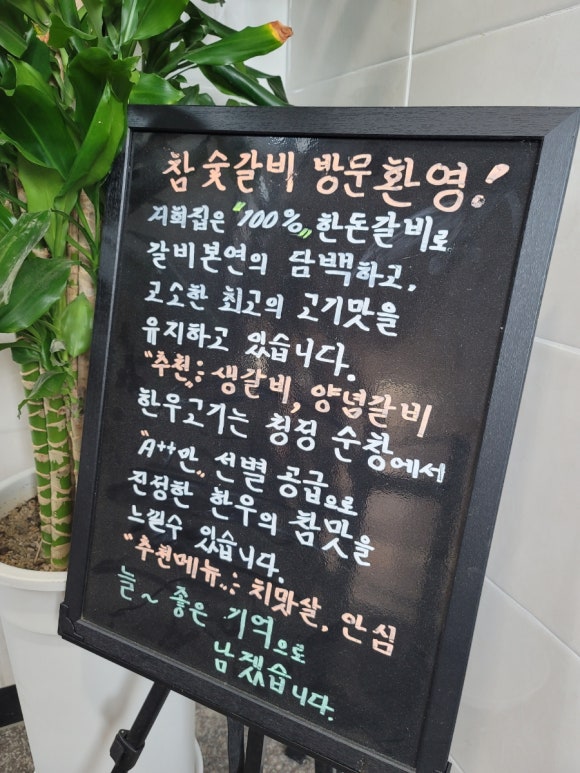 참숯갈비 방문환영!
저희집은 "100%" 한돈갈비로
갈비본연의 담백하고,
고소한 최고의 고기맛을
유지하고 있습니다.
"추천": 생갈비, 양념갈비
한우고기는 청정 순창에서
"A++만" 선별 공급으로
진정한 한우의 참맛을
느낄수 있습니다.
"추천메뉴": 치맛살, 안심
늘~ 좋은 기억으로
남겠습니다.